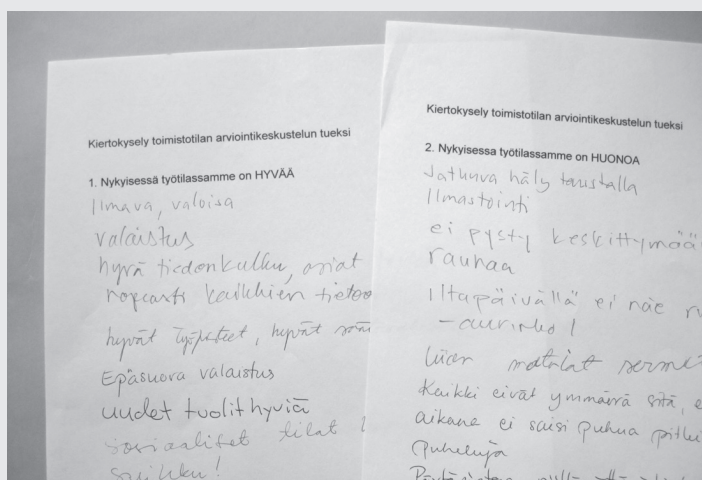 Kiertokysely toimistotilan arviointikeskustelun tueksi
1. Nykyisessä työtilassamme on HYVÄÄ
Ilmava, valoisa
valaistus
hyvä tiedonkulku, asiat
nopeasti kaikkien tietoo
hyvät työpisteet, hyvät
Epäsuora valaistus
uudet tuolit hyviä
sosiaaliset tilat
suihku!
Kiertokysely toimistotilan arviointikeskustelun tueksi
2. Nykyisessä työtilassamme on HUONOA
Jatkuva häly taustalla
Ilmastointi
ei pysty keskittymää
rauhaa
Iltapäivällä ei näe
- aurinko!
Liian matalat serm
Kaikki eivät ymmärrä sitä, e
aikana ei saisi puhua pitki
puheluja